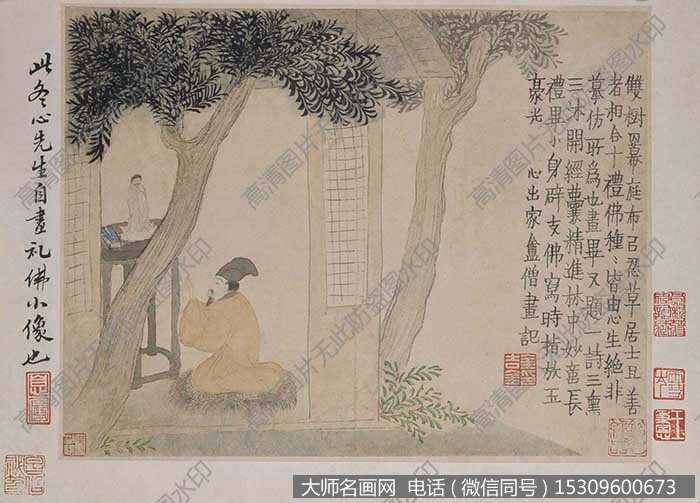 雙樹冪庭布召忍草居士且善
者相合十禮佛種〻皆由心生絕非
摹仿所為也畫畢又題一詩三熏
三沐開經囊精進林中妙蓄長
禮畢小身辟支佛寫時指放五
豪光
心出家盦僧畫記
此冬心先生自畫礼佛小像也
高清图片无此防盗图水印
大师名画网 电话（微信同号）15309600673